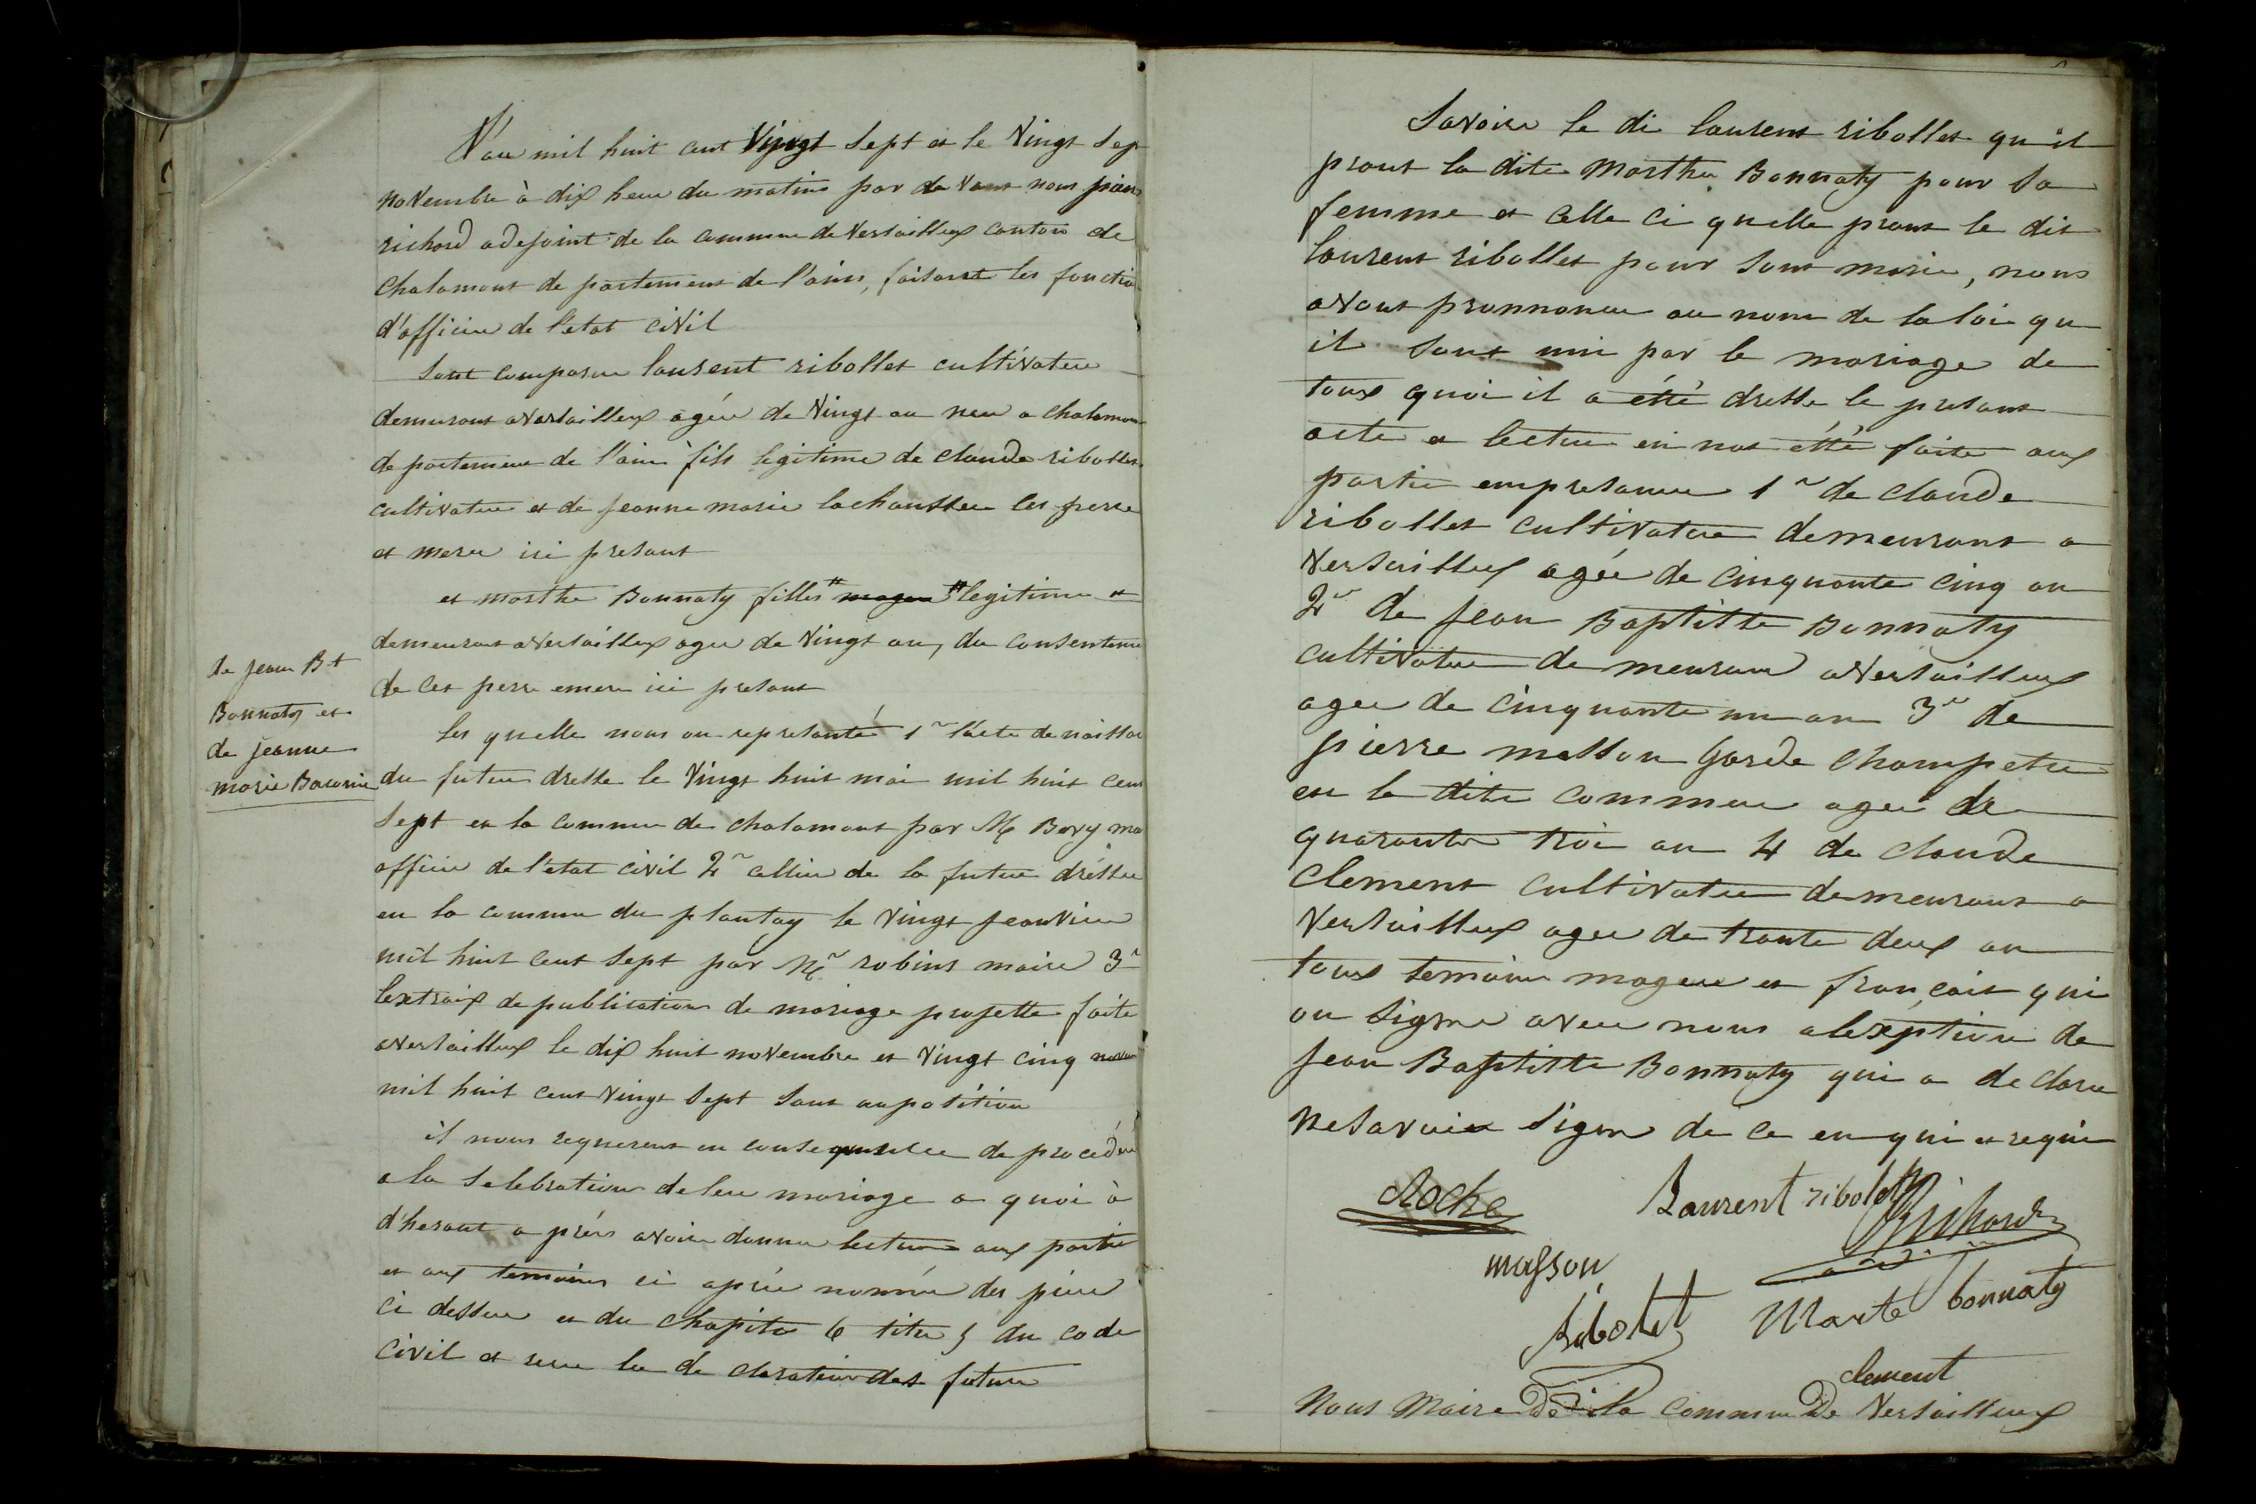 L'an mil huit cent Vingt Sept et le Vingt Sep
novembre à dix heur du matins par de Vant nous pierre
richard adejoint de la commune de Versailleux canton de
chalamont de partement de l'ains, faisant les fonctio
d'officier de l'etat civil
Sont comparu laurent ribollet cultivateur
demeurant aversailleux agée de Vingt an neu a chalamon
de partement de l'ain fils legitime de claude ribollet
cultivateur et de jeanne marie lachaussee les perre
et mere ici presant
et marthe Bonnaty filles mageu legitime et
demeurant aversailleux agee de Vingt an, du consenteme
de ces perre emere ici presant
de jean Bt
Bonnaty et
de jeanne
marie
les quelle nous on represanté 1r l'acte de naissa
du futeur dresse le Vingt huit mai mil huit cent
Sept en la commun de chalamont par Mr Bory ma
officier de l'etat civil 2r cellui de la future drésse
en la commun du plantay le vingt jeanvier
mil huit cent Sept par Mr robins maire 3r
lextraix de publication de mariage projette faite
aversailleux le dix huit novembre et Vingt cinq novem
mil huit cent vingt Sept Sans aupotition
il nous requerent en consequence de procédér
a la Selebration de leur mariage a quoi à
d'herant a prérs avoir donner lecture aux partie
et aux temoins ci aprée nomée des piece
ci dessu et du chapitre 6 titre 5 du code
civil et sur la de claration des future
Savoire le di laurent ribollet qu'il
prant la dite Marthe Bonnaty pour Sa
femme et celle ci quelle prant le dit
laurent ribollet pour Sont marie, nous
avont pronnoncer au nom de la loi qu
il Sont uni par le mariage de
tous quoi il a été dresse le presant
acte a lecture ein nat été faite aux
partie empresance 1r de claude
ribollet cultivateur demeurant a
Versailleux agée de cinquante cinq an
2r de jean Baptiste Bonnaty
cultivateur de meurant aversailleux
agee de cinquante un an 3r de
pierre masson garde champetre
en la dite commun agee de
quarante troi an 4 de claude
Clement cultivateur demeurant a
Versailleux agee de trante deux an
tous temoin mageur et françait qui
on Signe avec nous alexption de
jean Baptiste Bonnaty qui a de clare
ne Savoir Signe de ce en qui a requi
Roche
Laurent ribolet
Richard
masson
adj
Ribolet
Marte bonnaty
clement
Nous Maire De la Commun De Versailleux